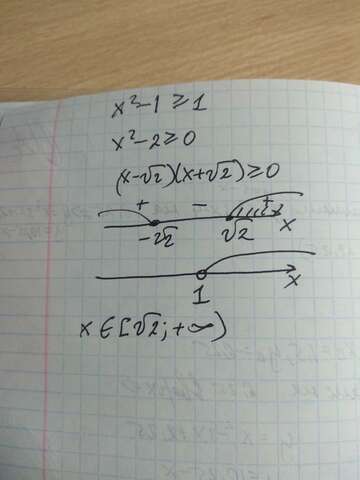 x²-1 ≥ 1
x²-2 ≥ 0
(x-√2)(x+√2) ≥ 0
+ - +
-√2 √2 x
1 x
x ∈ [√2; +∞)